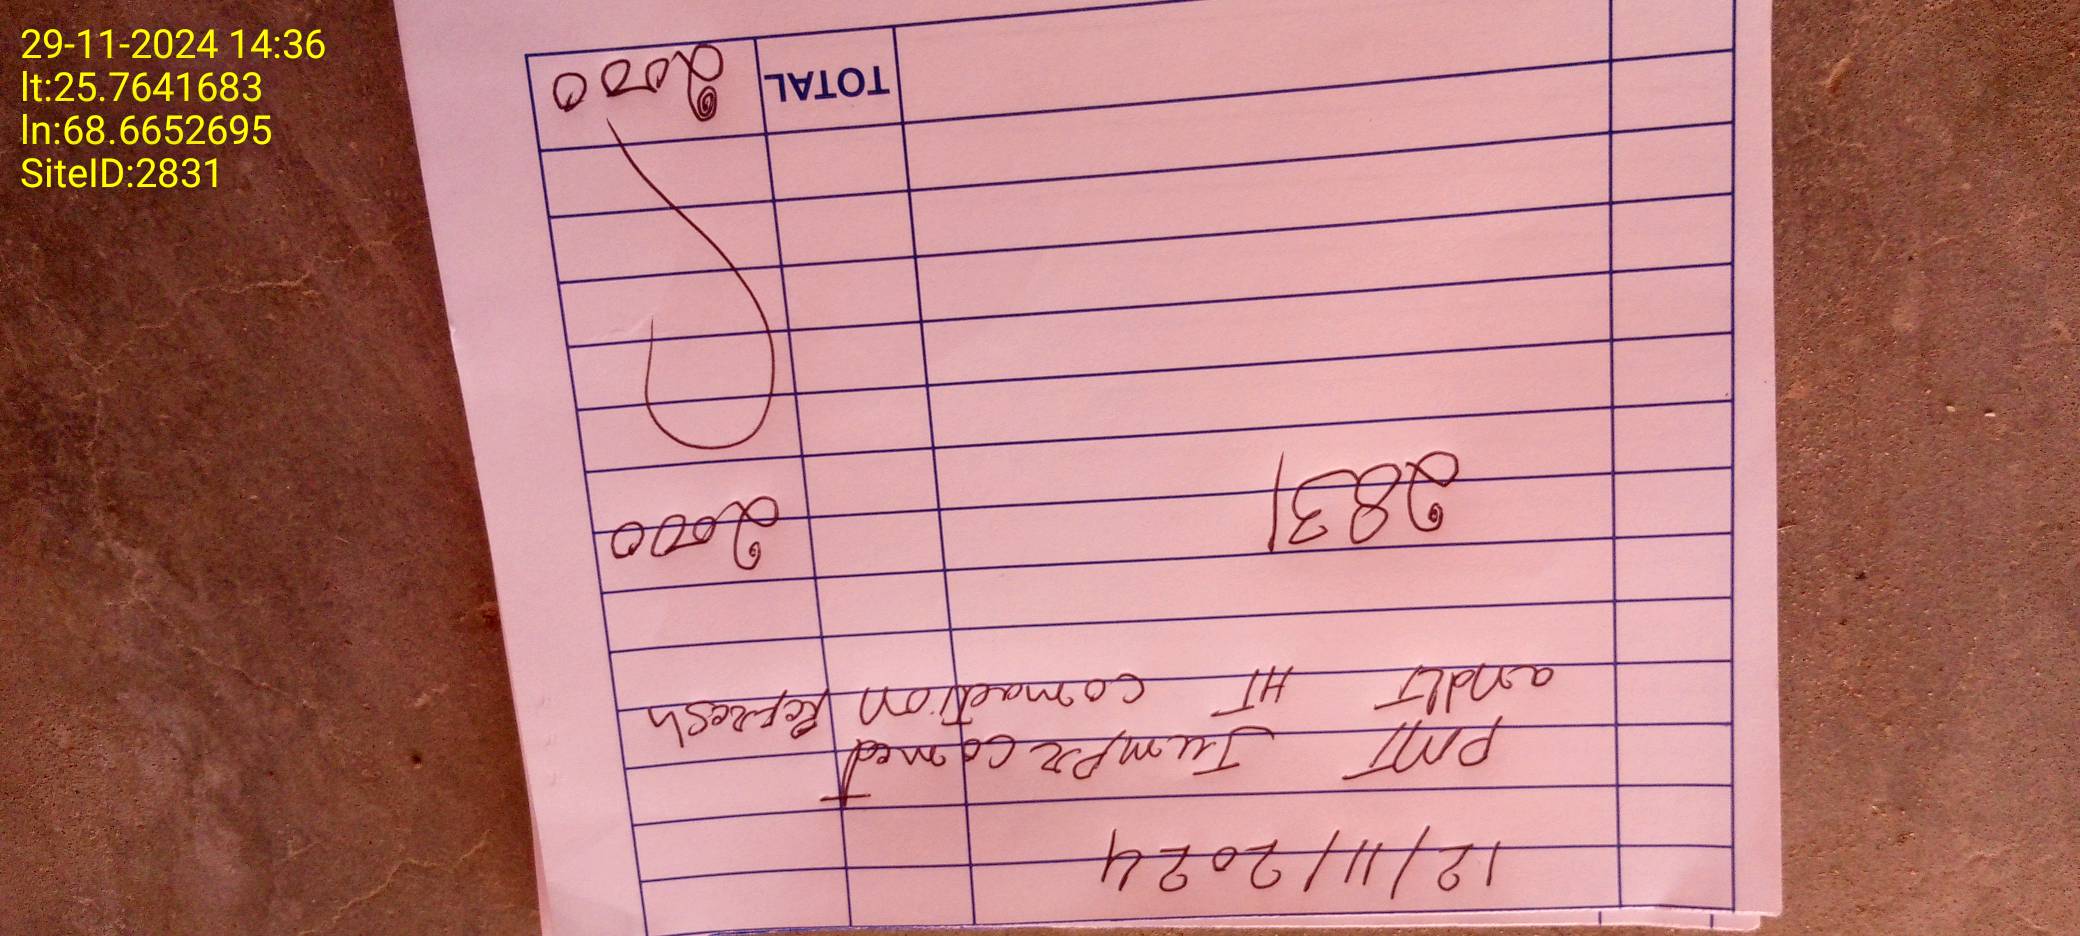 29-11-2024 14:36
lt:25.7641683
ln:68.6652695
SiteID:2831
12/11/2024
PMT Jumpr connect
and LT HT connection Refresh
2831 2000
TOTAL 2000